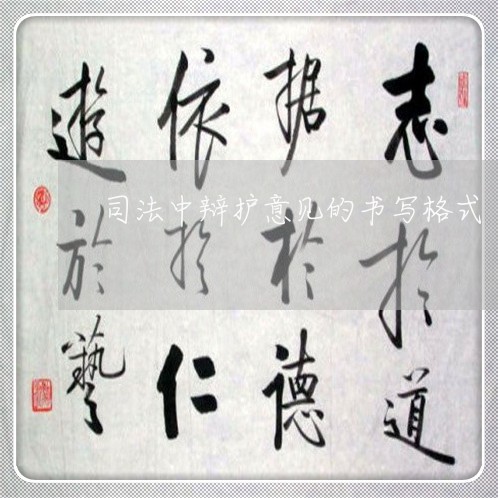 志於道
据於德
依於仁
遊於藝
司法中辩护意见的书写格式